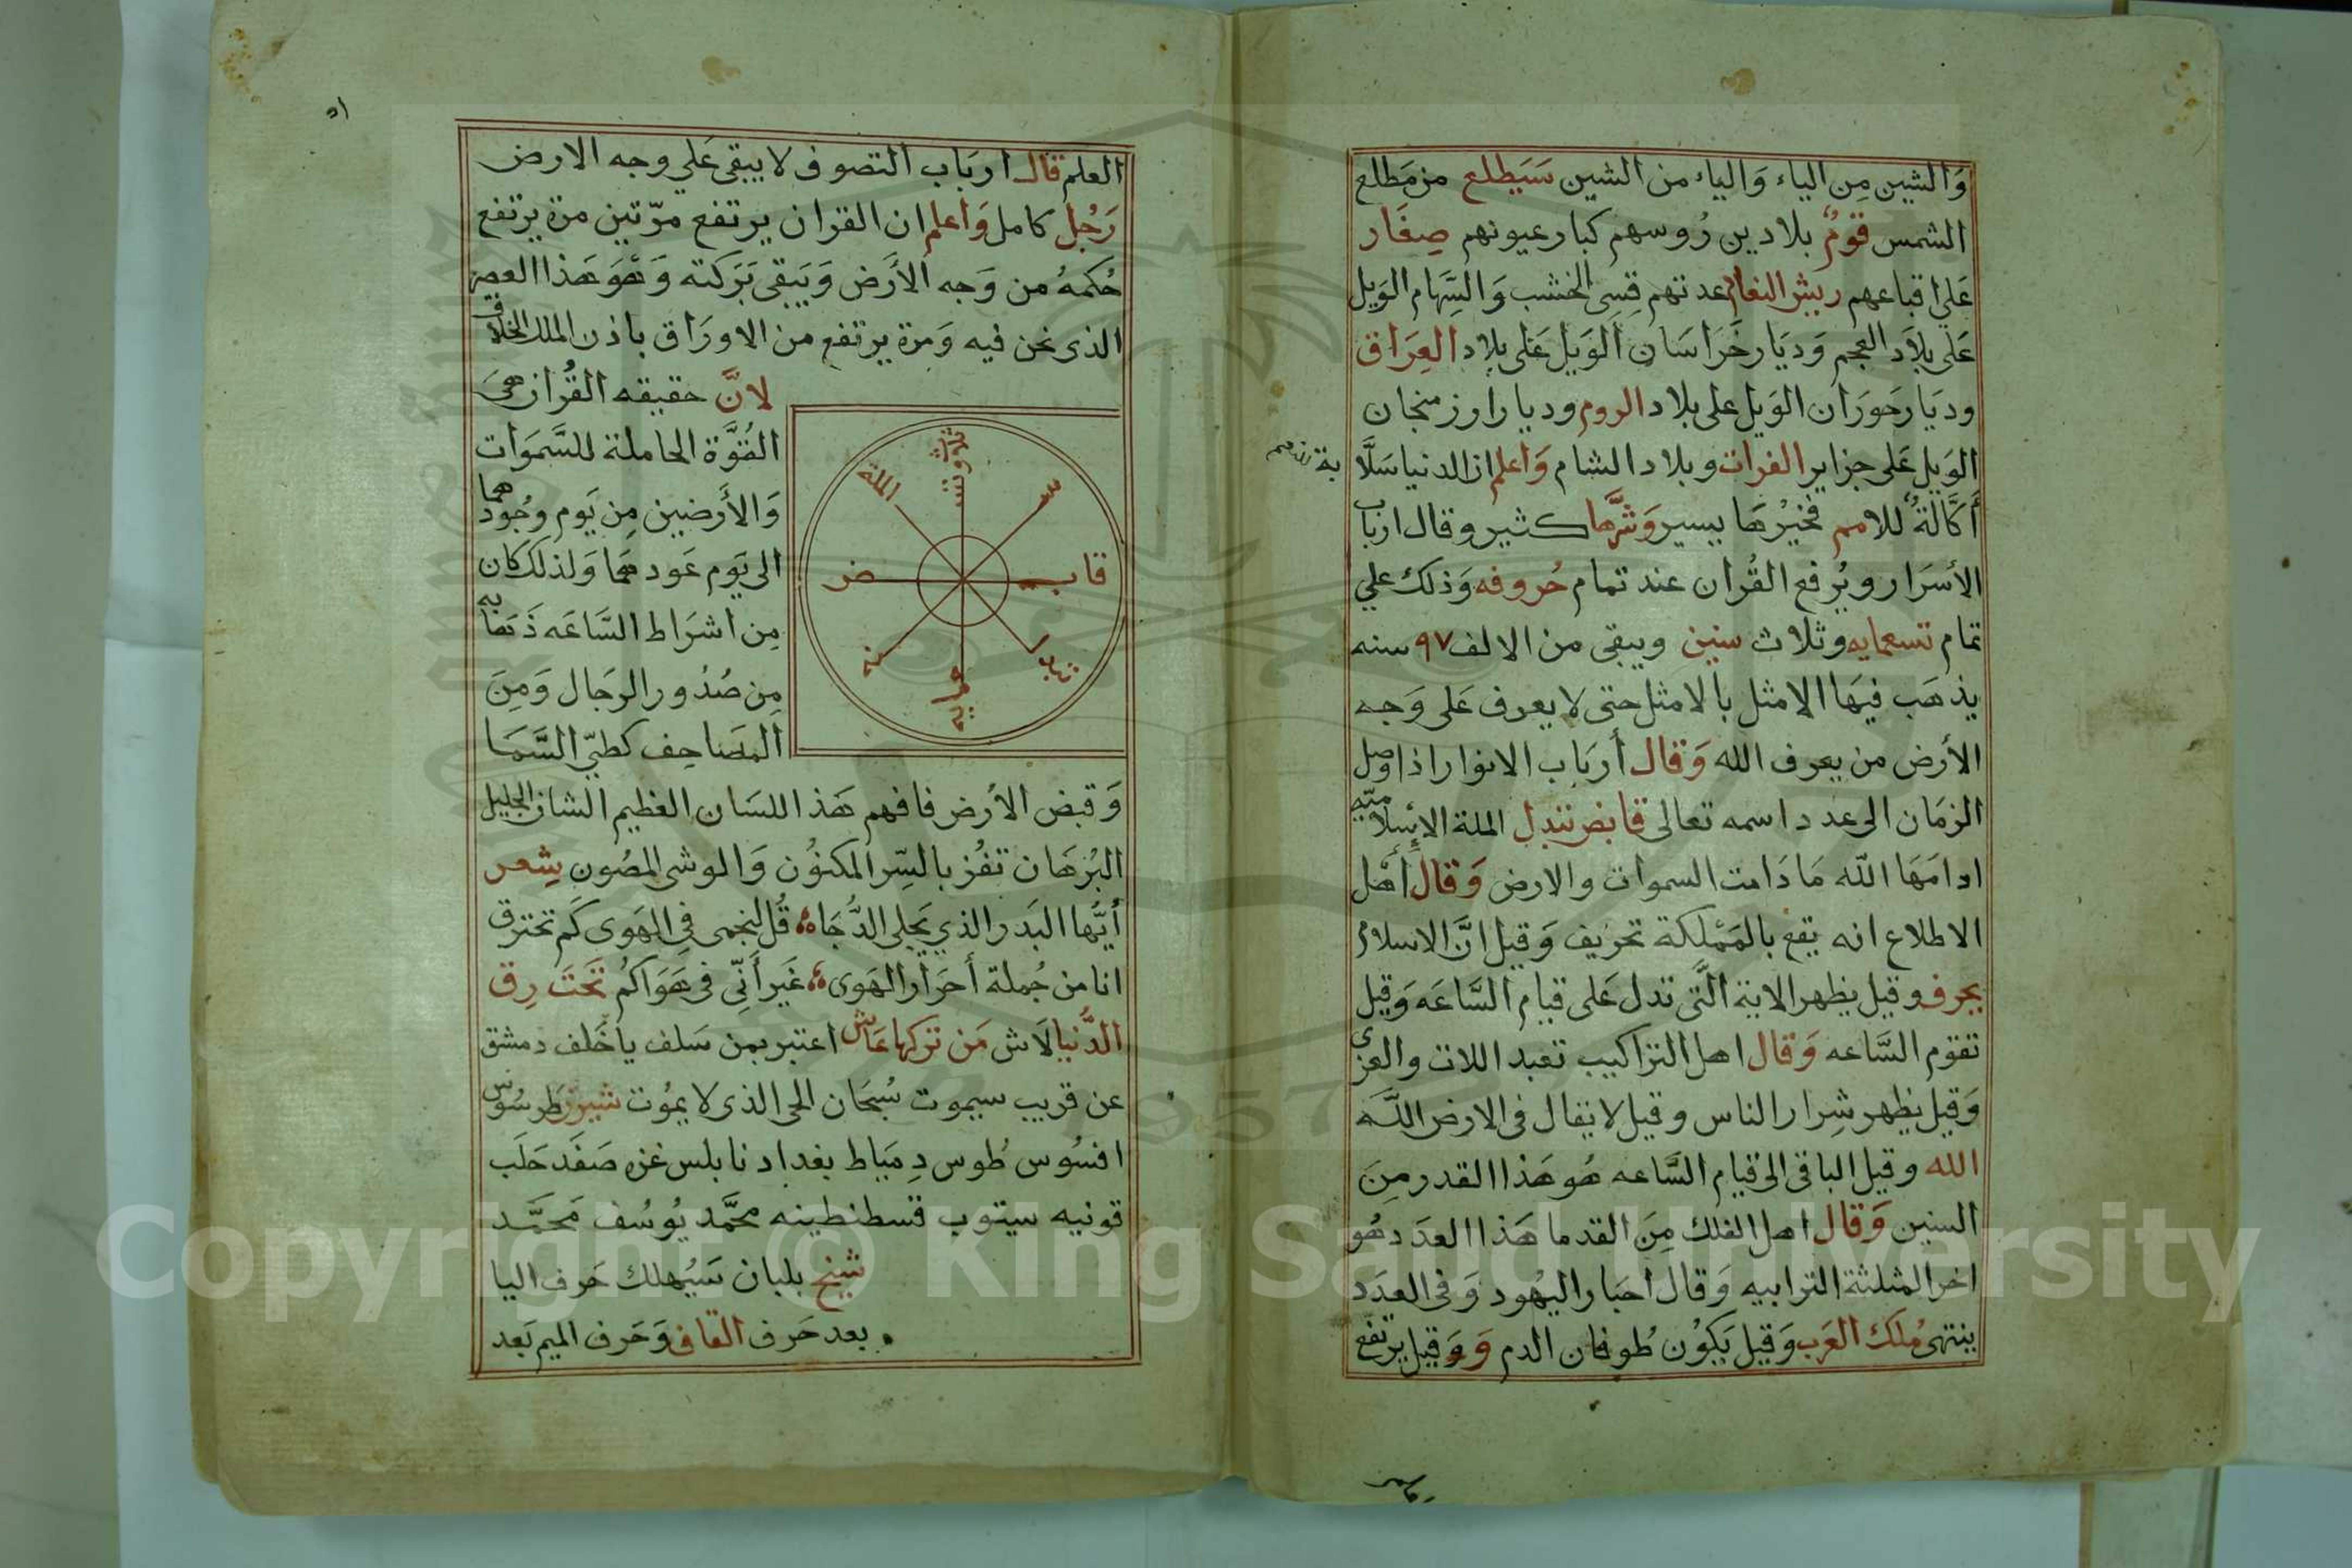 وَالشين مِن الياء وَالياء من الشين سَيَطلع من مَطلع
الشمس قومٌ بلادين رُوسهم كبار عيونهم صِغَار
عَلي اقباعهم ريش النعام عدتهم قِسِى الخشب وَالسِّهام الوَيل
عَلى بلَاد العجم وَدِيَار خَرَاسَان الوَيل عَلى بلاد العِرَاق
ودِيَار حَورَان الوَيل على بلاد الروم وديار ارزمنجان
الوَيل عَلى جزاير الفرات وبلاد الشام وَاعلم ان الدنيا سَلَّابة
أَكَّالةٌ للامم فخيرُهَا يسير وَشَرَّها كثير وقال ارباب
الأسرَار ويُرفع القُران عند تمام حُروفه وَذلك علي
تمام تسعمايه وثلاث سنين ويبقى من الالف ٩٧ سنه
يذهَب فيهَا الامثل بالامثل حتى لا يعرف عَلى وَجه
الأرض من يعرف الله وَقال أربَاب الانوار اذا وصل
الزمَان الى عدد اسمه تعالى قابض تتبدل الملة الإسلاميّه
ادامَهَا اللّه مَا دَامت السموات والارض وَقال أهل
الاطلاع انه يقع بالمَمْلكة تحريف وَقيل انَّ الاسلام
يحرف وقيل يظهر الاية الَّتى تدل عَلى قيام السَّاعَه وَقيل
تقوم السَّاعه وَقال اهل التراكيب تعبد اللات والعزى
وَقيل يظهر شِرار الناس وقيل لا يقال فى الارض اللَّه
الله وقيل الباقى الى قيام السَّاعه هُو هَذا القدر مِنَ
السنين وَقال اهل الفلك مِنَ القدما هَذا العدَد هُو
اخر المثلثة الترابيه وَقال احبَار اليُهود وَفى العدَد
ينتهى مُلك العَرب وَقيل يَكوُن طُوفان الدم وَ وَقيل يرتفع
العلم قال اربَاب التصوف لا يبقى عَلي وجه الارض
رَجُل كامل وَاعلم ان القران يرتفع مرّتين مرة يرتفع
حُكمهُ من وَجه الأرَض وَيَبقى بَرَكته وَهُوَ هَذا العصر
الذى نحن فيه وَمرة يرتفع من الاورَاق باذن الملك الخلاق
لانَّ حقيقه القُران هىَ
القُوَّة الحاملة للسَّمَوَات
وَالأَرضين مِن يَوم وُجُودهما
الى يَوم عَودهمَا وَلذلك كان
مِن اشرَاط السَّاعَه ذَهَابه
مِن صُدُور الرجَال وَمِنَ
المصَاحِف كطىّ السَّمَا
ثلاث وتش
الملة
س
قاب
ض
سنه
عمايه
وَقبض الأرض فافهم هَذا اللسَان العظيم الشان الجليل
البُرهَان تفُز بالسِّر المكنوُن وَالوشى المصُون شِعر
أيُّها البَدر الذي يَجلى الدُّجَاه قُل لنجمى فِى الهَوى كَم تحترق
انا من جُملة أحَرَار الهَوى غَير أَنّى فى هَوَاكمُ تَحتَ رِق
الدُّنيا لَاش مَن تركهَا عَاش اعتبر بمن سَلف يا خَلف دمشق
عن قريب سيموت سُبحَان الحى الذى لا يموُت شيزر طرسُوس
افسُوس طُوس دِميَاط بغداد نابلس غزه صَفَد حَلَب
قونيه سيتوب قسطنطينه محمَّد يوُسُف مَحمَّد
شيخ بلبان سَيُهلك حَرف اليا
بعد حَرف القاف وَحَرف الميم بَعد